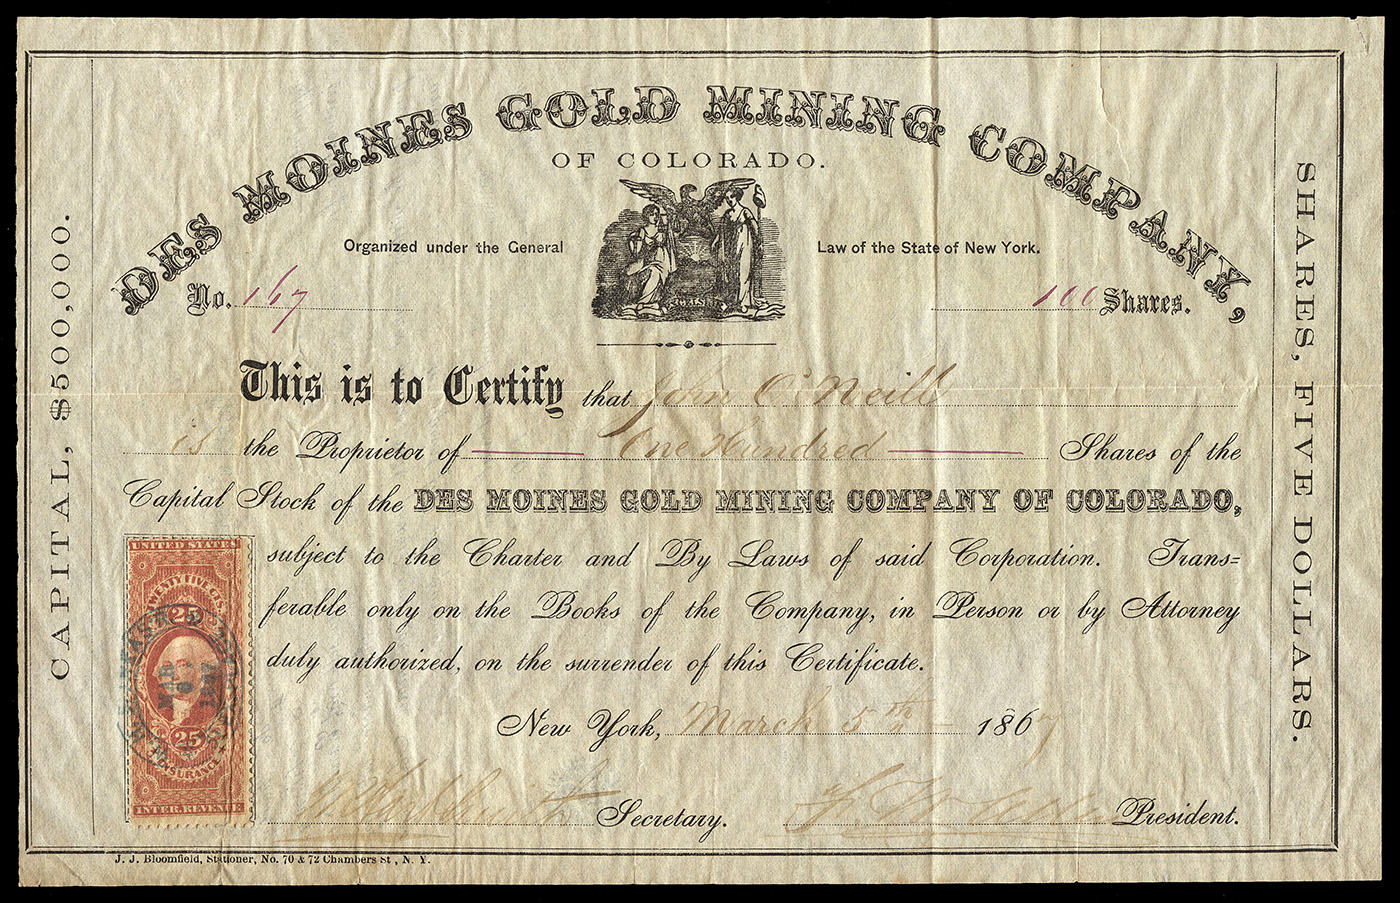 DES MOINES GOLD MINING COMPANY,
OF COLORADO.
Organized under the General Law of the State of New York.
No. 167
100 Shares.
EXCELSIOR
This is to Certify that John O'Neill
is the Proprietor of One Hundred Shares of the
Capital Stock of the DES MOINES GOLD MINING COMPANY OF COLORADO,
subject to the Charter and By Laws of said Corporation. Trans=
ferable only on the Books of the Company, in Person or by Attorney
duly authorized, on the surrender of this Certificate.
New York, March 5th 1867
Secretary.
President.
CAPITAL, $500,000.
SHARES, FIVE DOLLARS.
UNITED STATES
TWENTY FIVE CTS.
25
MAR
25
INSURANCE
INTER. REVENUE
J. J. Bloomfield, Stationer, No. 70 & 72 Chambers St, N. Y.